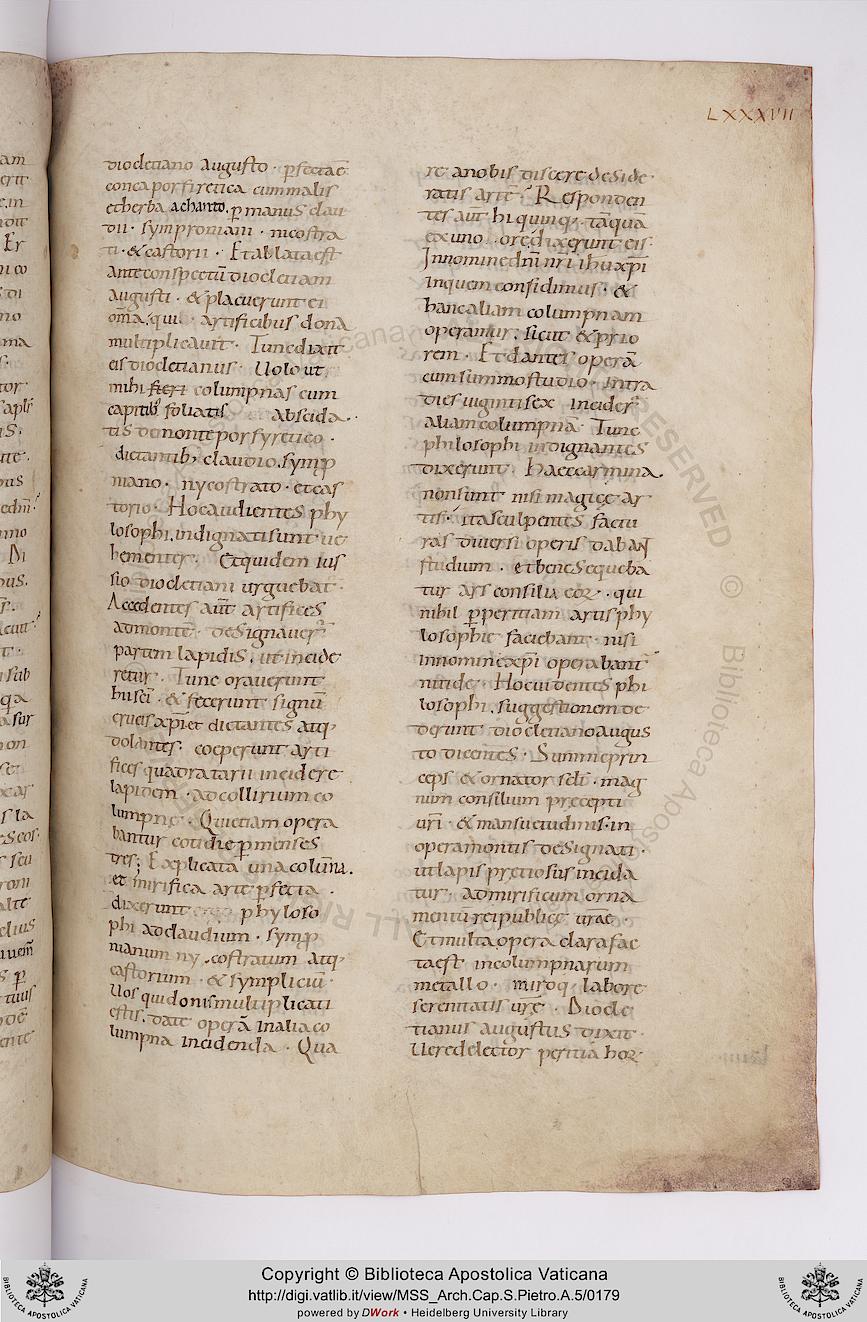 LXXXVII
diocletiano augusto · ꝑfectaē
conca porfiretica cum malis
et herba achanto. ꝑ manus clau
dii · symproniani · nicostra
ti · & castorii · Et ablata est
ante conspectū diocletiani
augusti · & placuerunt ei
om̄a · qui · artificibus dona
multiplicavit · Tunc dixit
eis diocletianus · Uolo ut
mihi fieri columpnas cum
capitib; foliatis abscida
tis de monte porfyretico ·
dictantib; claudio. symꝓ
niano · nycostrato · et cas
torio · Hoc audientes phy
losophi. indignati sunt ue
hementer · Et quidem ius
sio diocletiani urguebat ·
Accedentes aut̄ artifices
ad montē · designauer̄
partem lapidis. ut incide
retur · Tunc orauerunt
hi sc̄i · & fecerunt signū
crucis xp̄i et dictantes atq;
dolantes · coeperunt arti
fices quadratarii incidere
lapidem · ad collirium co
lumpnę · Qui etiam opera
bantur cotidie ꝑ menses
tres; Explicata una colūna.
et mirifica arte ꝑfecta ·
dixerunt ergo phyloso
phi ad claudium · symꝓ
nianum ny.costratum atq;
castorium · & sympliciū ·
Uos qui donis multiplicati
estis. date operā in alia co
lumpna incidenda · Qua
re a nobis discere deside
ratis artē · Responden
tes aut̄ hi quinq; tā quā
ex uno · ore dixerunt eis ·
In nomine dn̄i nr̄i ihu xp̄i
in quem confidimus · &
hanc aliam columpnam
operamur. sicut & prio
rem · Et dantes operā
cum summo studio · intra
dies uiginti sex incider̄
aliam columpnā · Tunc
philosophi indignantes
dixerunt · Haec carmina
non sunt nisi magicę ar
tis · ita sculpentes factu
ras diuersi operis dabant
studium · et bene sequeba
tur ars consilia eoꝝ · qui
nihil ꝑ peritiam artis phy
losophie faciebant · nisi
in nomine xp̄i operabant̄
nitide · Hoc uidentes phi
losophi. suggestionem de
derunt diocletiano augus
to dicentes · Summe prin
ceps & ornator scl̄i · mag
num consilium precepti
ur̄i · & mansuetudinis · in
opera montis designati ·
ut lapis pretiosus incida
tur · ad mirificum orna
mentū reipublicę urae ·
Et multa opera clara fac
ta est in columpnarum
metallo · miroq; labore
serenitatis ur̄e · Diocle
tianus augustus dixit ·
Uere delector peritia hor
Copyright © Biblioteca Apostolica Vaticana
http://digi.vatlib.it/view/MSS_Arch.Cap.S.Pietro.A.5/0179
powered by DWork • Heidelberg University Library